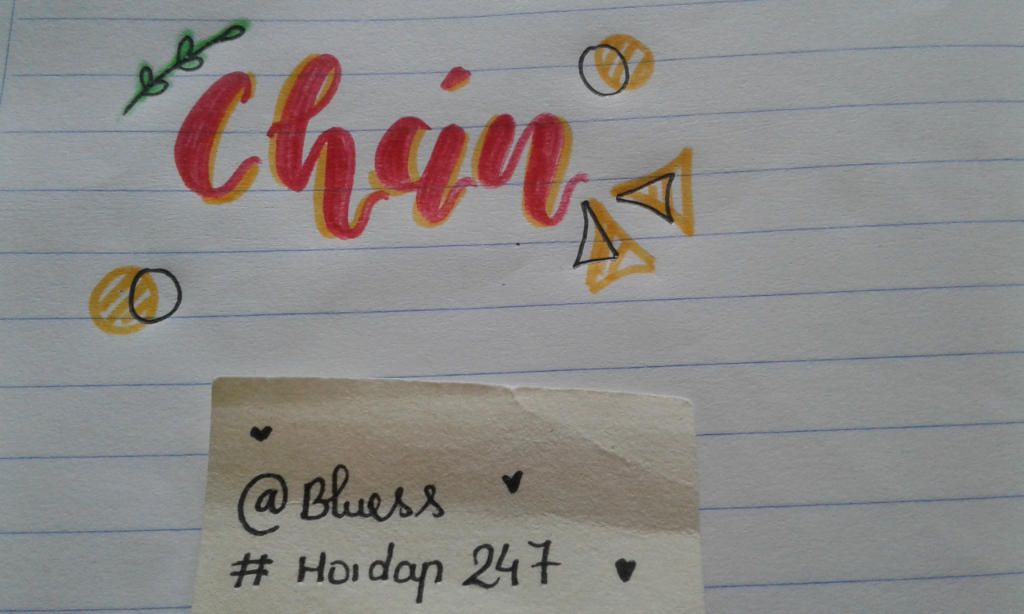 Chán
@Bluess
# Hoidap 247